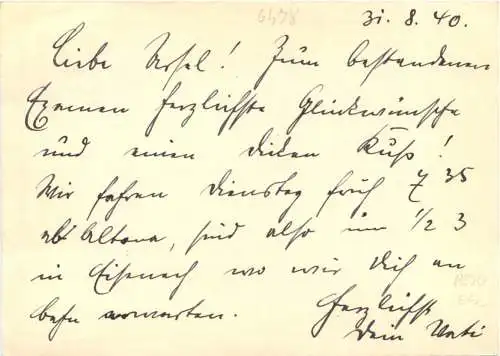 6478
31. 8. 40.
Liebe Ursel! Zum bestandenen
Examen herzlichste Glückwünsche
und einen dicken Kuß!
Wir fahren Dienstag früh 7 35
ab Altona, sind also um 1/2 3
in Eisenach wo wir Dich an
bahn erwarten.
Herzlichst
Dein Vati